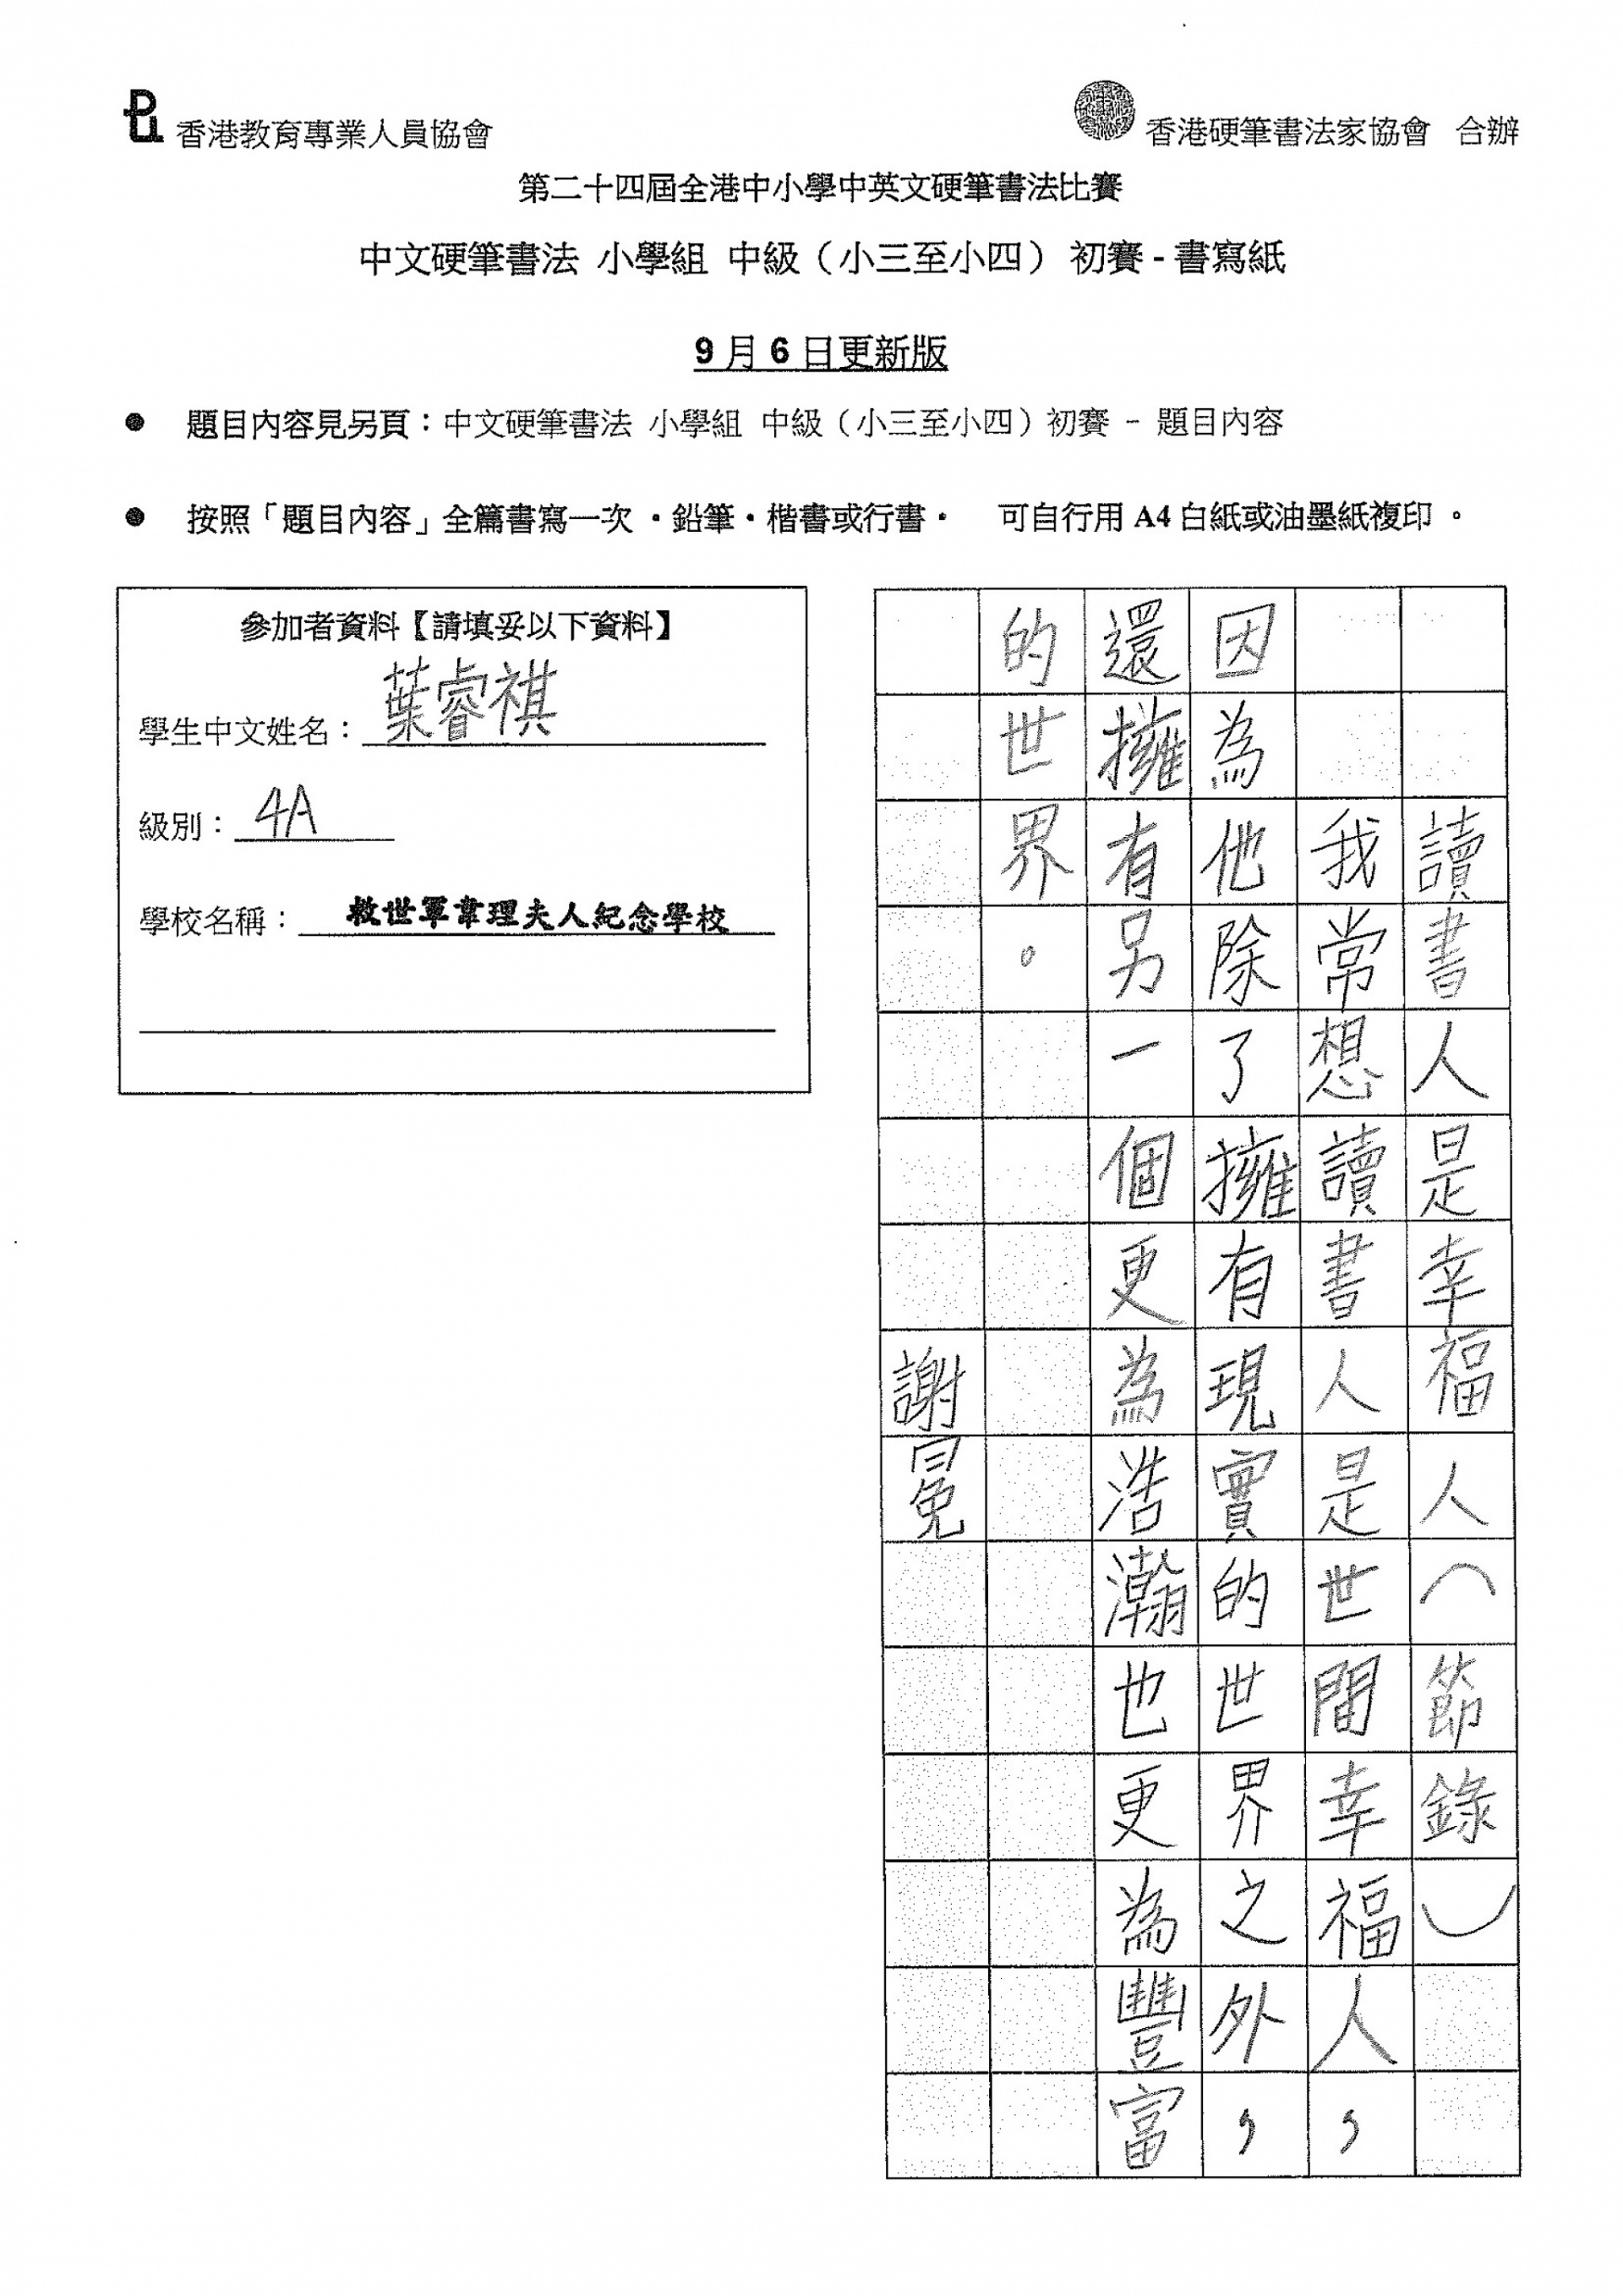 香港教育專業人員協會
香港硬筆書法家協會 合辦
第二十四屆全港中小學中英文硬筆書法比賽
中文硬筆書法 小學組 中級（小三至小四） 初賽 - 書寫紙
9 月 6 日更新版
● 題目內容見另頁：中文硬筆書法 小學組 中級（小三至小四）初賽 - 題目內容
● 按照「題目內容」全篇書寫一次・鉛筆・楷書或行書・ 可自行用 A4 白紙或油墨紙複印。
參加者資料【請填妥以下資料】
學生中文姓名：葉睿祺
級別：4A
學校名稱：救世軍韋理夫人紀念學校
讀書人是幸福人（節錄）
我常想讀書人是世間幸福人，
因為他除了擁有現實的世界之外，
還擁有另一個更為浩瀚也更為豐富
的世界。
謝冕